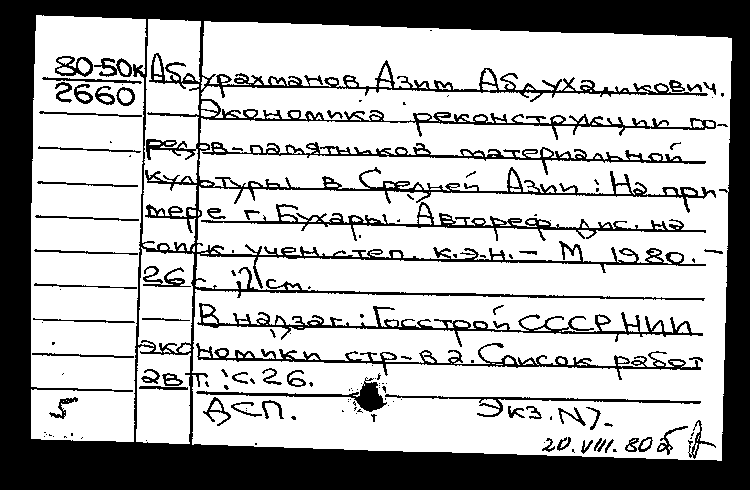 80-50к Абдурахманов, Азим Абдухаликович.
2660
Экономика реконструкции го-
родов-памятников материальной
культуры в Средней Азии: На при-
мере г. Бухары. Автореф. дис. на
соиск. учен. степ. к.э.н. - М, 1980. -
26 с.; 21 см.
В надзаг.: Госстрой СССР, НИИ
экономики стр-ва. Список работ
авт.: с. 26.
5 ДСП. Экз. N7.
20.VIII.80